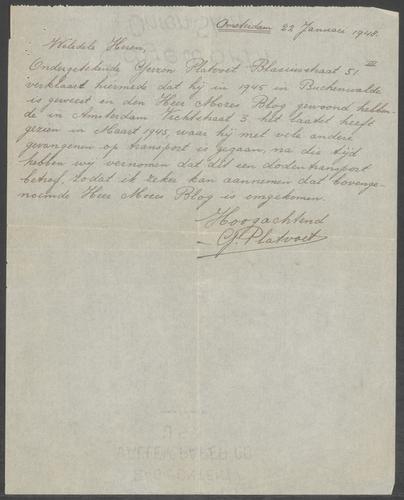 Amsterdam 22 Januari 1948.
Weledele Heren,
Ondergetekende Gerron Platvoet Blasiusstraat 51 III
verklaart hiermede dat hij in 1945 in Buchenwalde
is geweest en den Heer Mozes Blog gewoond hebben-
de in Amsterdam Vechtstraat 3 het laatst heeft
gezien in Maart 1945, waar hij met vele andere
gevangenen op transport is gegaan, na die tijd
hebben wij vernomen dat dit een dodentransport
betrof. Zodat ik zeker kan aannemen dat bovenge-
noemde Heer Mozes Blog is omgekomen.
Hoogachtend
G. Platvoet